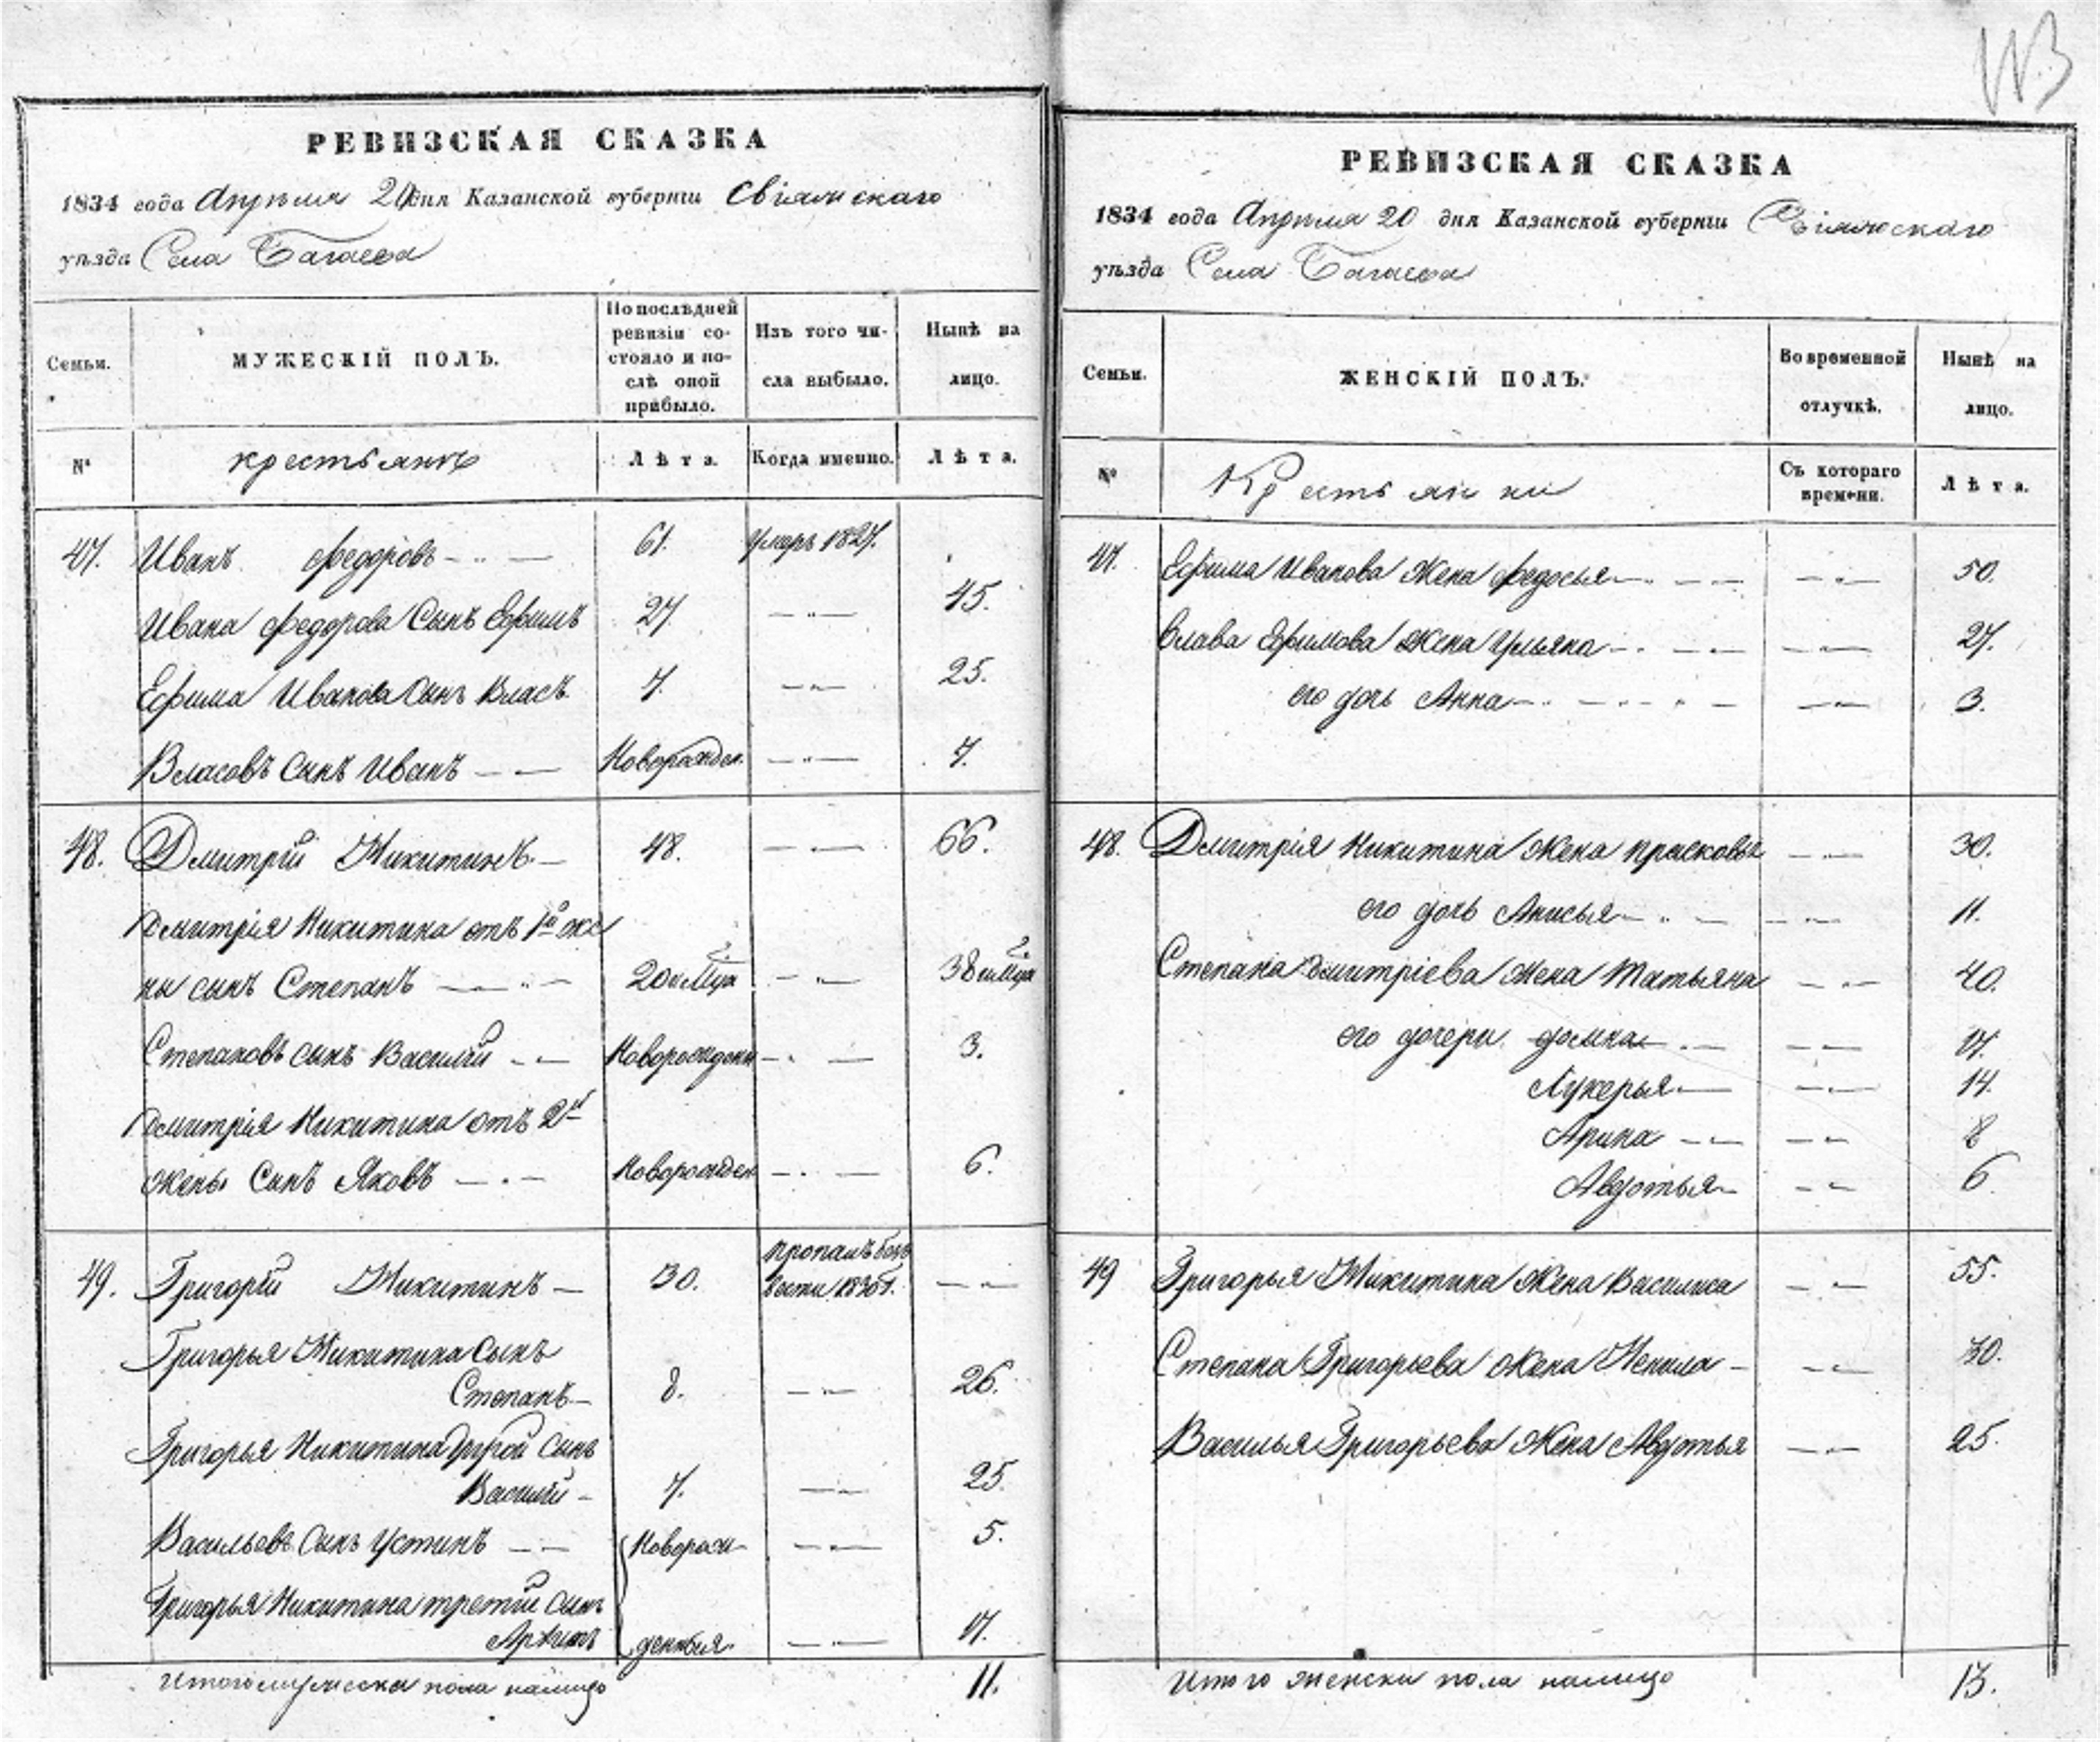 РЕВИЗСКАЯ СКАЗКА
1834 года Апреля 20 дня Казанской губерніи Свіяжскаго
уѣзда Села Багаева
Семьи.
МУЖЕСКІЙ ПОЛЪ.
По послѣдней
ревизіи со-
стояло и по-
слѣ оной
прибыло.
Изъ того чи-
сла выбыло.
Нынѣ на
лицо.
№
крестьянъ
Лѣта.
Когда именно.
Лѣта.
47. Иванъ Федоровъ 61. Умеръ 1827.
Ивана Федорова Сынъ Ефимъ 27 45.
Ефима Иванова Сынъ Власъ 7. 25.
Власовъ Сынъ Иванъ Новорожден. 7.
48. Дмитрій Никитинъ 48. 66.
Дмитрія Никитина отъ 1й же
ны сынъ Степанъ 20 38
Степановъ сынъ Василий Новорожден 3.
Дмитрія Никитина отъ 2й
жены Сынъ Яковъ Новорожден 6.
49. Григорій Никитинъ 30. пропалъ безъ
вести
Григорья Никитина Сынъ
Степанъ 8. 26.
Григорья Никитина другой Сынъ
Василий 7. 25.
Васильевъ Сынъ Устинъ Новорож 5.
Григорья Никитина третій Сынъ
денныя 17.
Итого мужеска пола налицо 11.
РЕВИЗСКАЯ СКАЗКА
1834 года Апреля 20 дня Казанской губерніи Свіяжскаго
уѣзда Села Багаева
Семьи.
ЖЕНСКІЙ ПОЛЪ.
Во временной
отлучкѣ.
Нынѣ на
лицо.
№
Крестьянки
Съ котораго
времени.
Лѣта.
47. Ефима Иванова Жена Федосья 50.
Власа Ефимова Жена Ульяна 27.
его дочь Анна 3.
48. Дмитрія Никитина Жена Прасковья 30.
его дочь Анисья 11.
Степана Дмитріева Жена Татьяна 40.
его дочери Домна 17.
Лукерья 14.
Арина 8
Авдотья 6
49 Григорья Никитина Жена Василиса 55.
Степана Григорьева Жена Ненила 30.
Василья Григорьева Жена Авдотья 25.
Итого женска пола налицо 13.